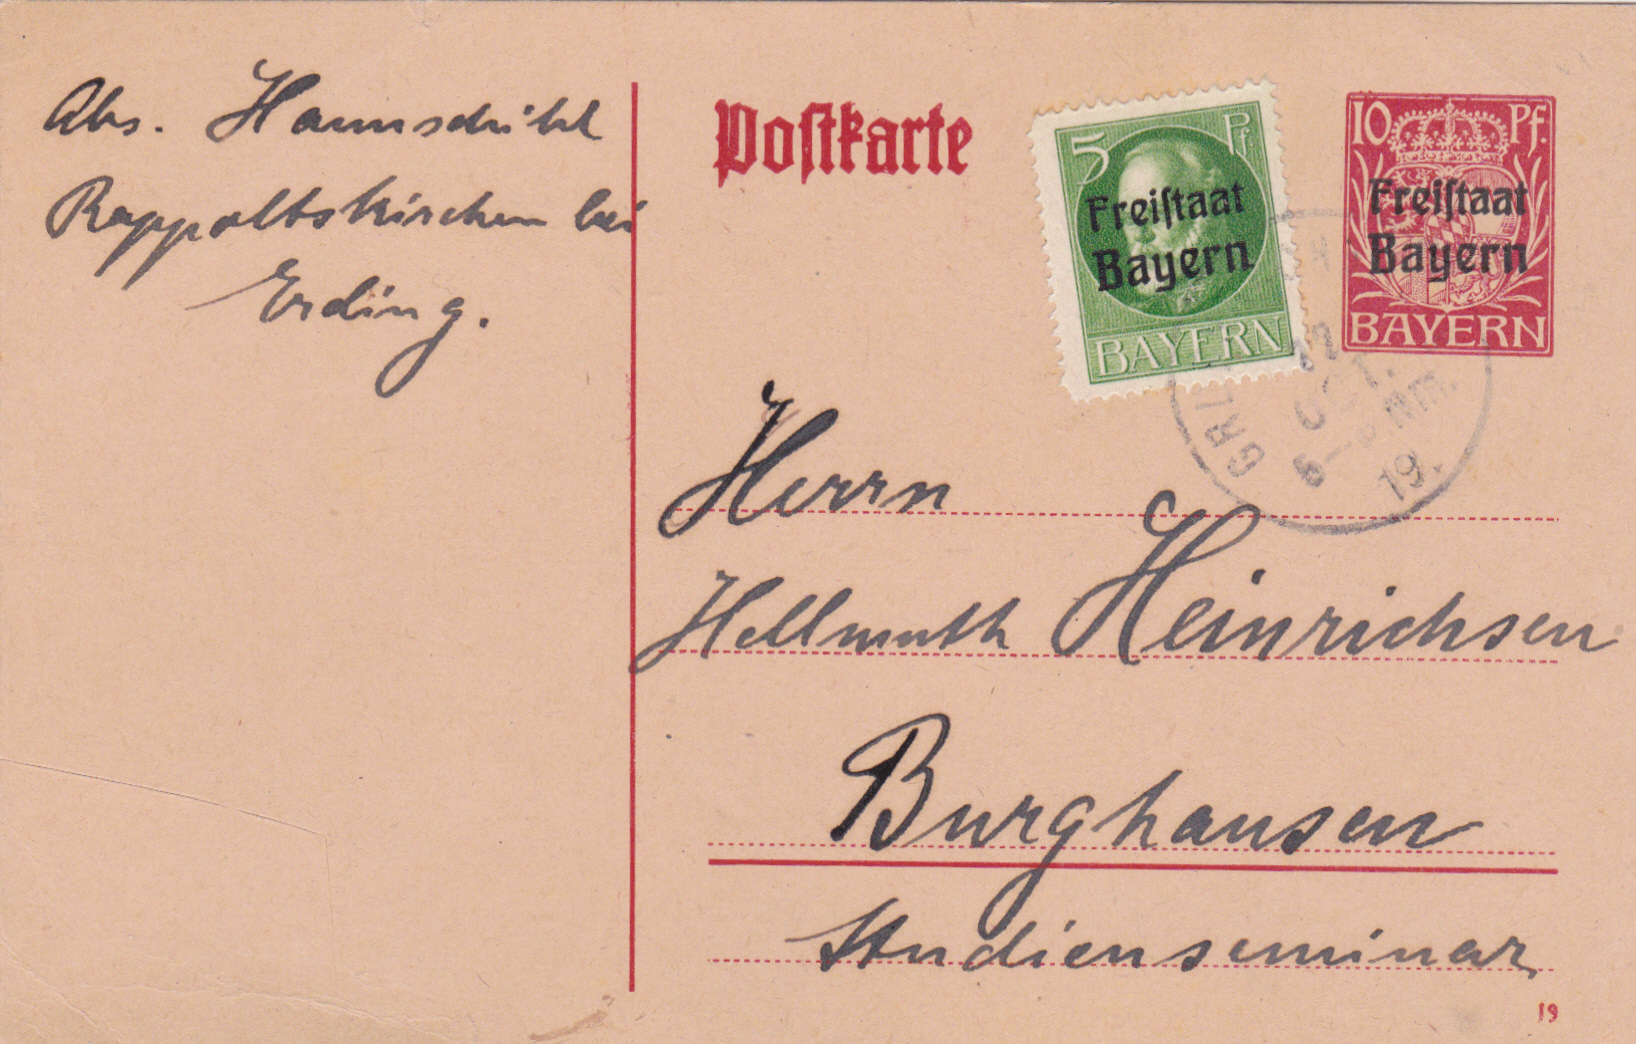 Abs. Hamnschihl
Rappoltskirchen bei
Erding.
Postkarte
5 Pf
Freistaat
Bayern
BAYERN
10 Pf.
Freistaat
Bayern
BAYERN
OCT.
19.
Herrn
Hellmuth Heinrichsen
Burghausen
Studienseminar
19